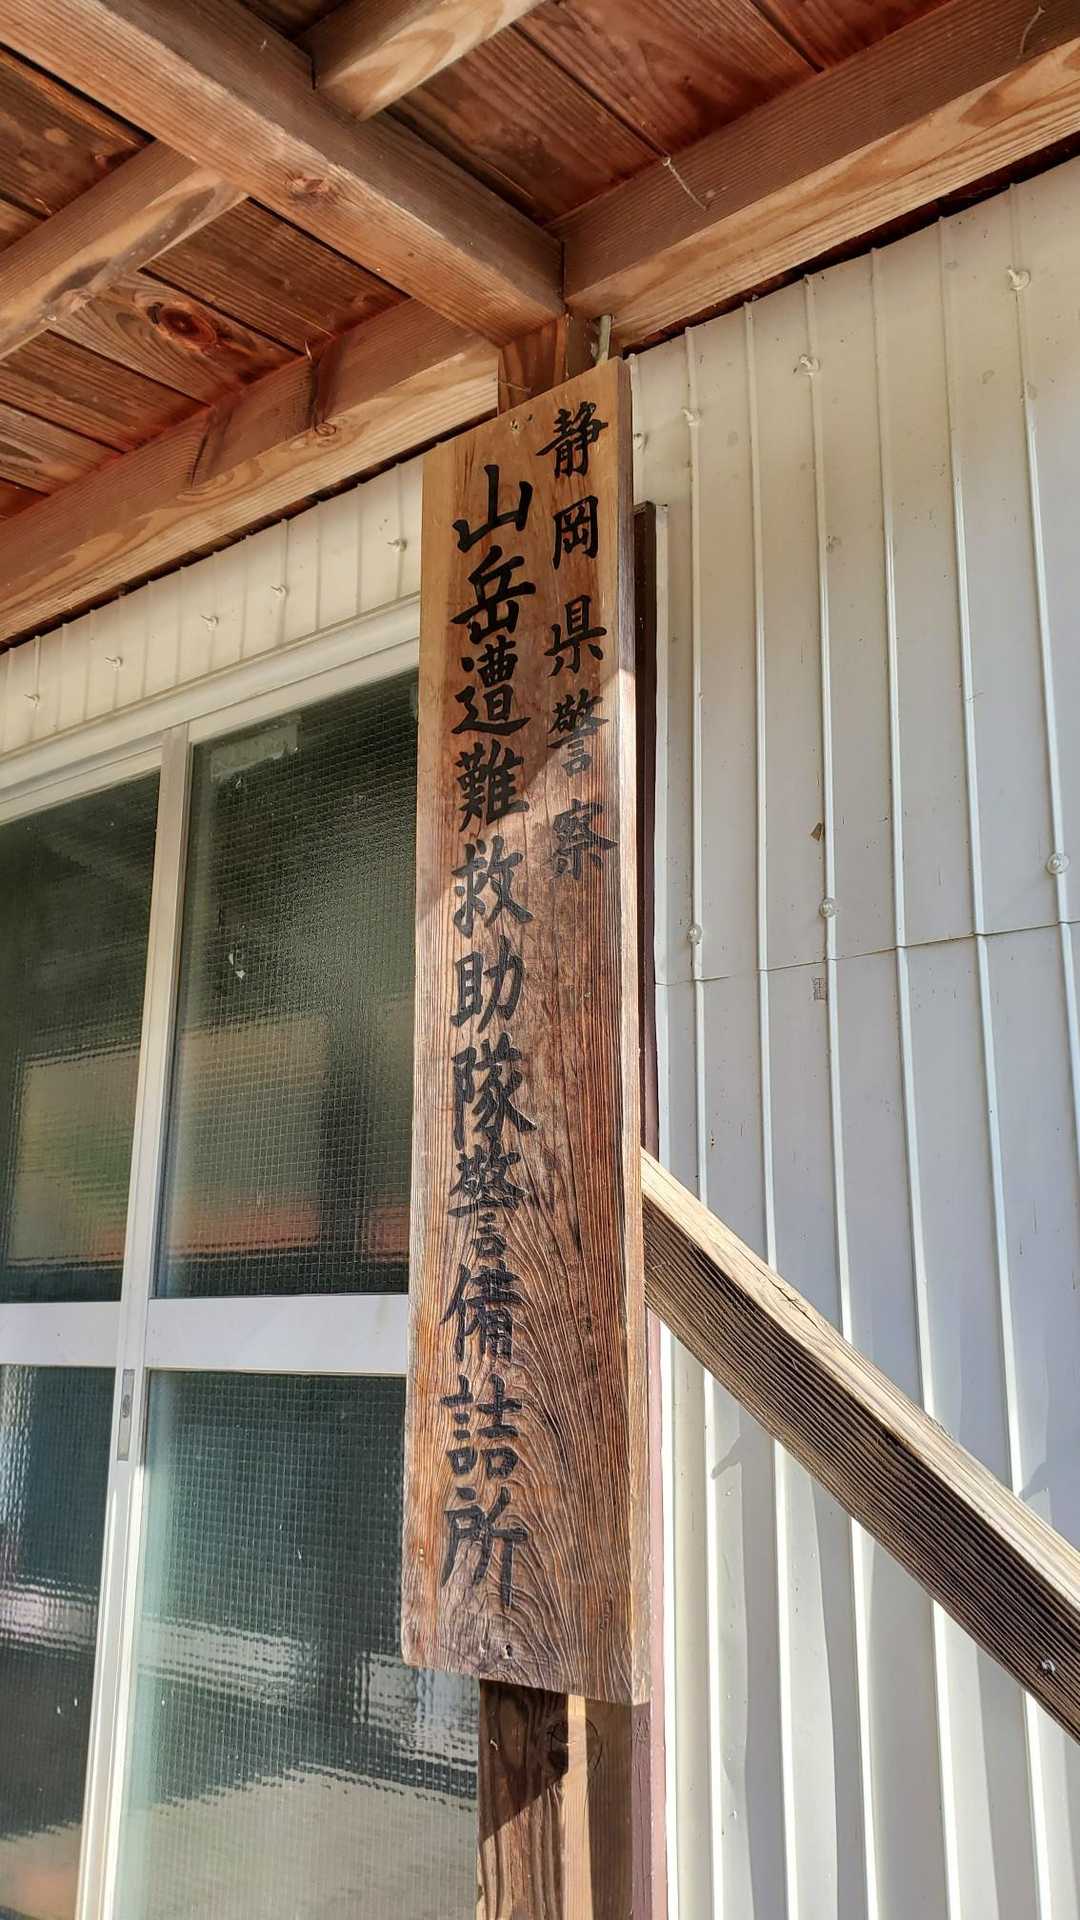 静岡県警察
山岳遭難救助隊警備詰所